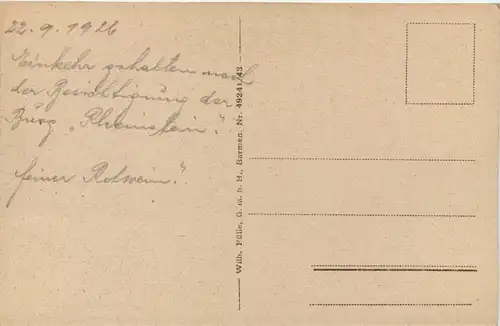 22.9.1926
Einkehr gehalten nach
der Besichtigung der
Burg „Rheinstein“.
feiner Rotwein“.
Wilh. Fülle, G. m. b. H., Barmen. Nr. 49241/43